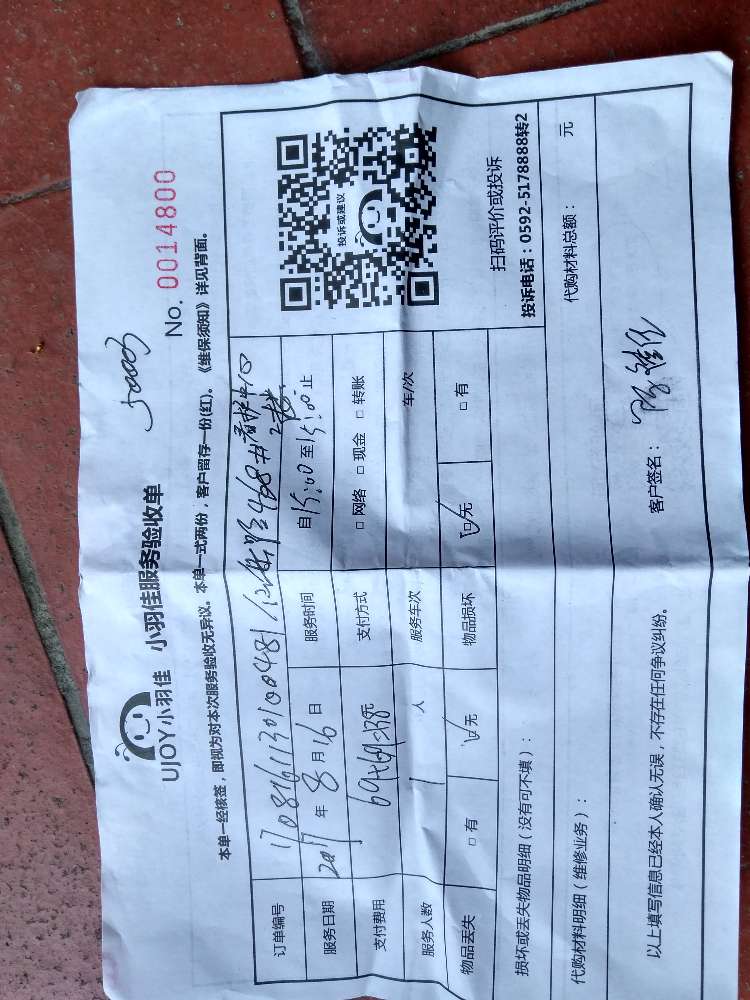 5000
No. 0014800
UJOY小羽佳 小羽佳服务验收单
本单一经核签，即视为对本次服务验收无异议，本单一式两份，客户留存一份(红)。《维保须知》详见背面。
订单编号 170816113010048
服务日期 2017 年 8 月 16 日 服务时间 自15:00至15:00止
支付费用 69+69=138元 支付方式 □ 网络 □ 现金 □ 转账
服务人数 1 人 服务车次 车/次
物品丢失 □ 有 ☑无 物品损坏 ☑无 □ 有
投诉或建议
扫码评价或投诉
投诉电话：0592-5178888转2
损坏或丢失物品明细（没有可不填）：
代购材料明细（维修业务）： 代购材料总额： 元
以上填写信息已经本人确认无误，不存在任何争议纠纷。 客户签名：